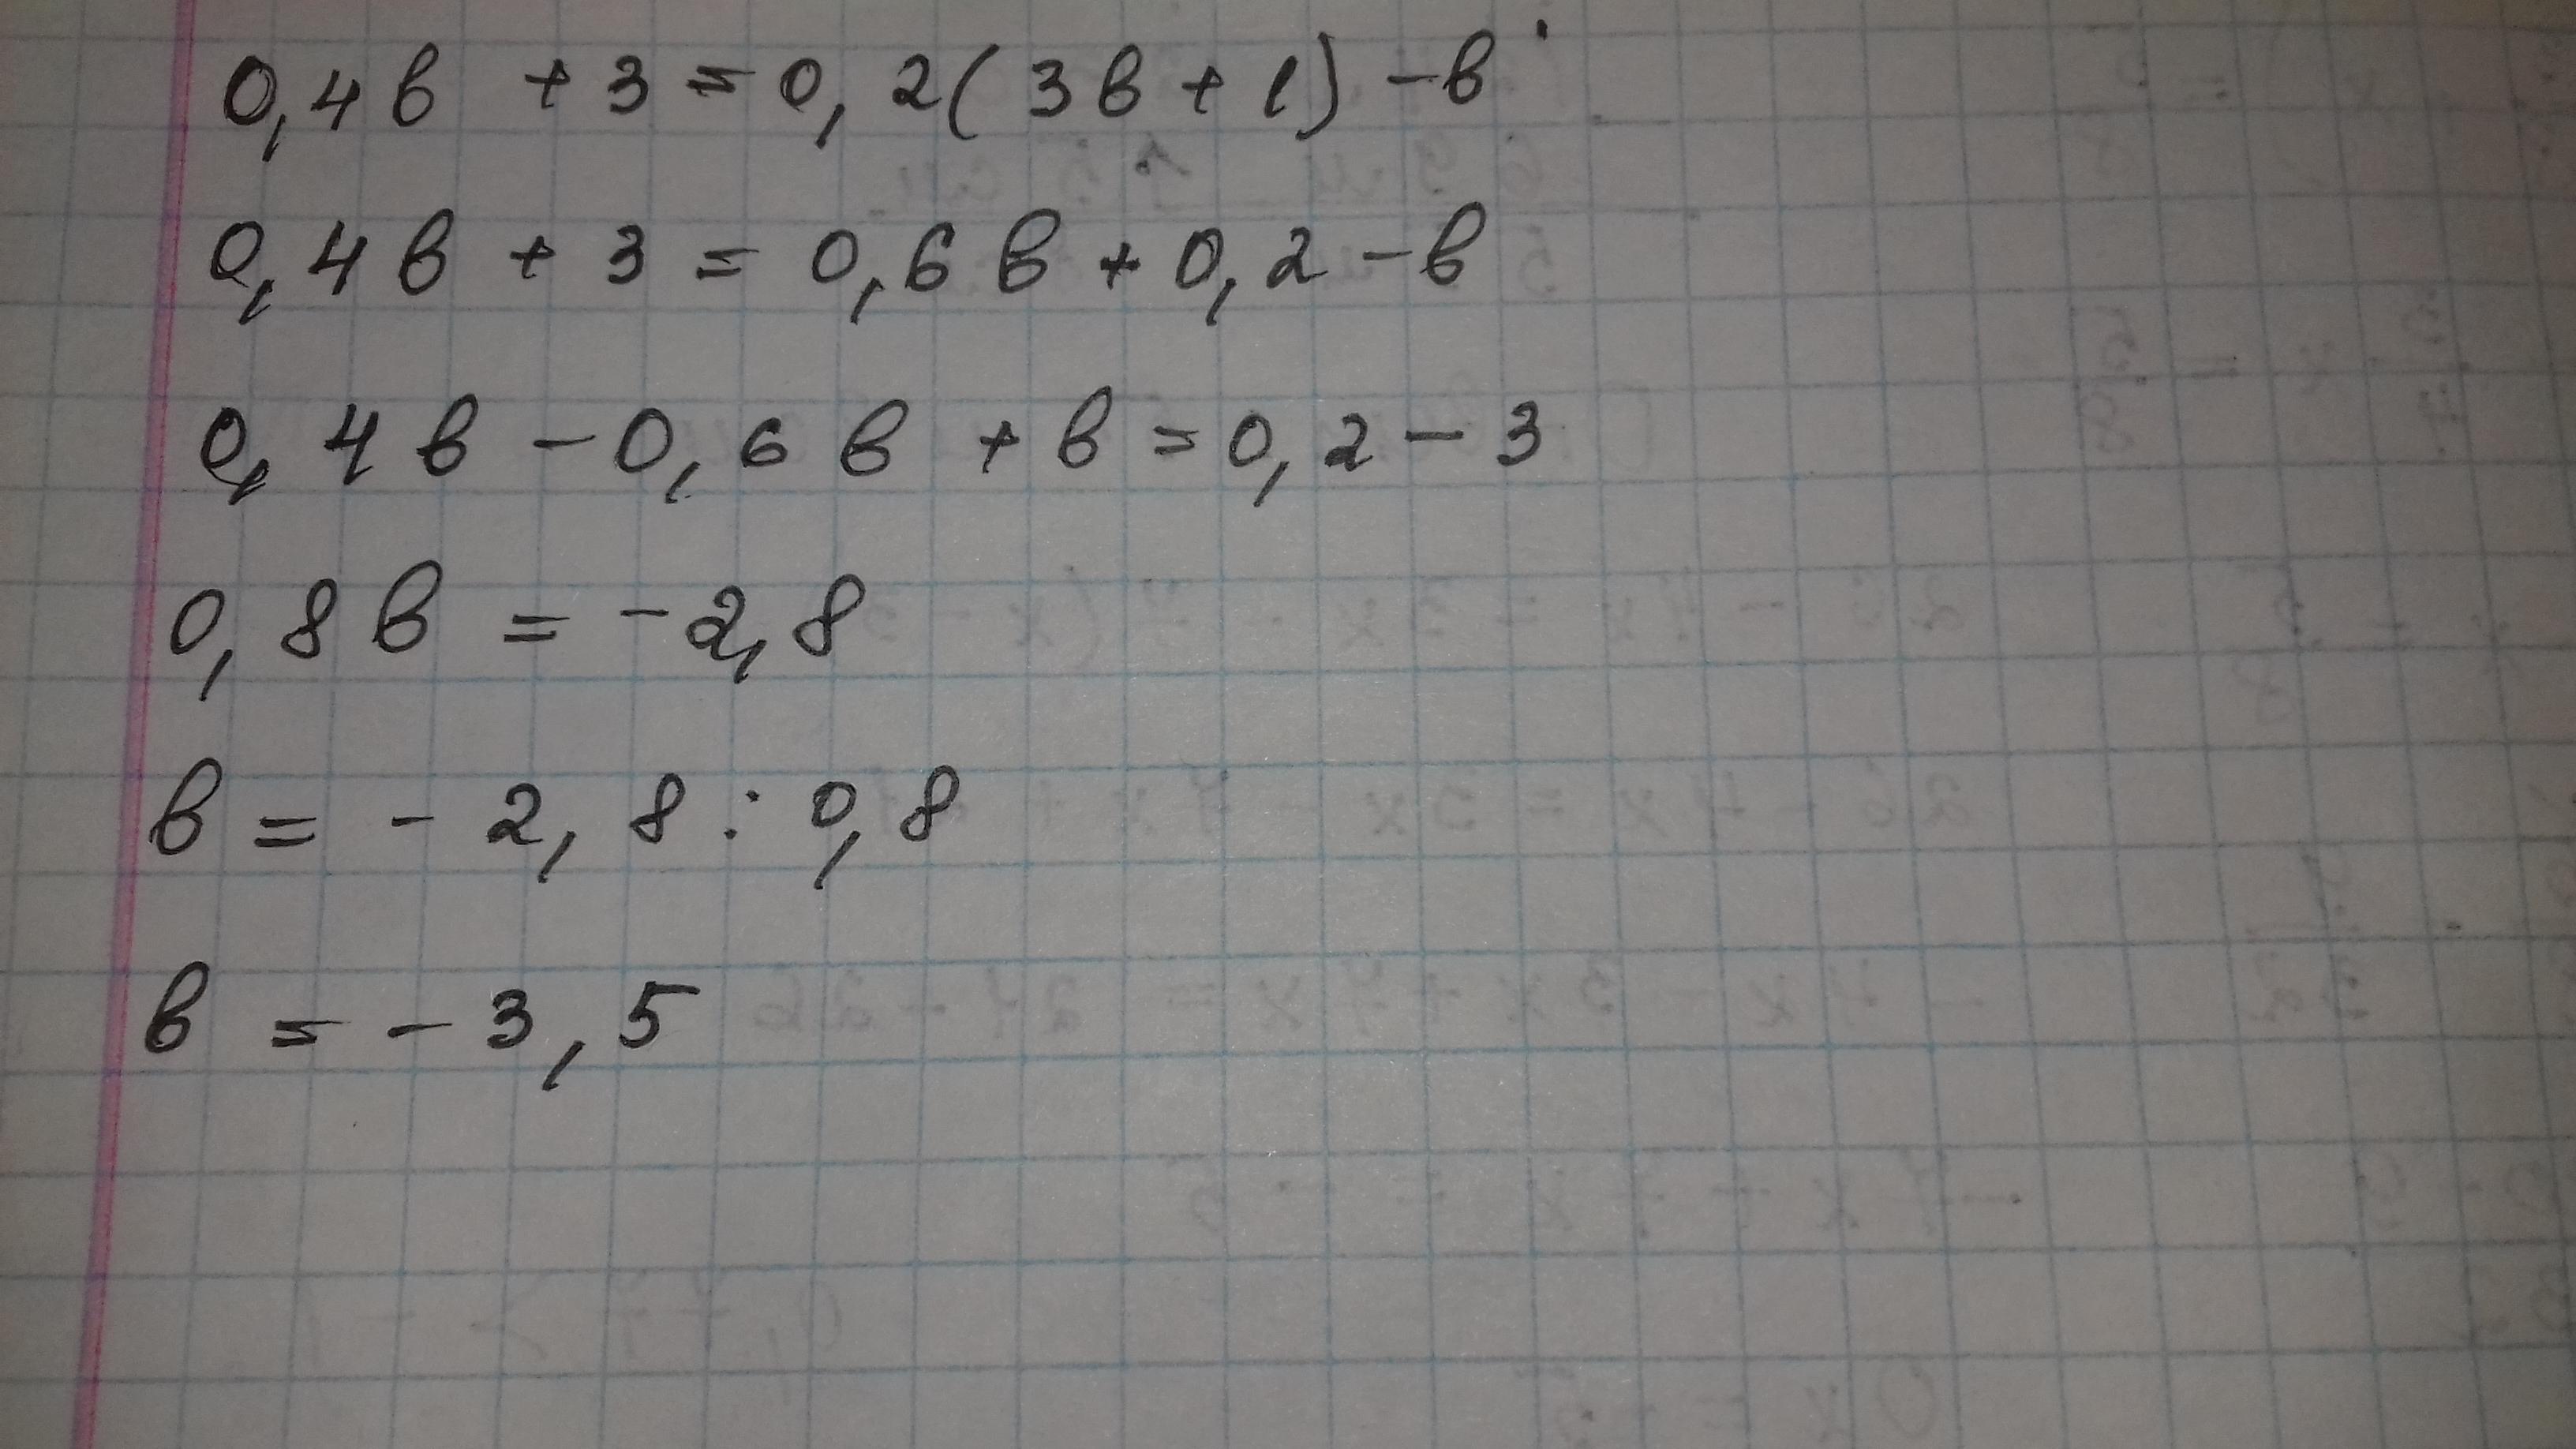 0,4в + 3 = 0,2(3в + 1) - в
0,4в + 3 = 0,6в + 0,2 - в
0,4в - 0,6в + в = 0,2 - 3
0,8в = -2,8
в = - 2,8 : 0,8
в = - 3,5